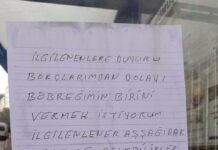 İLGİLENENLERE DUYURU
BORÇLARIMDAN DOLAYI
BÖBREĞİMİN BİRİNİ
VERMEK İSTİYORUM
İLGİLENLENER AŞŞAĞIDAK